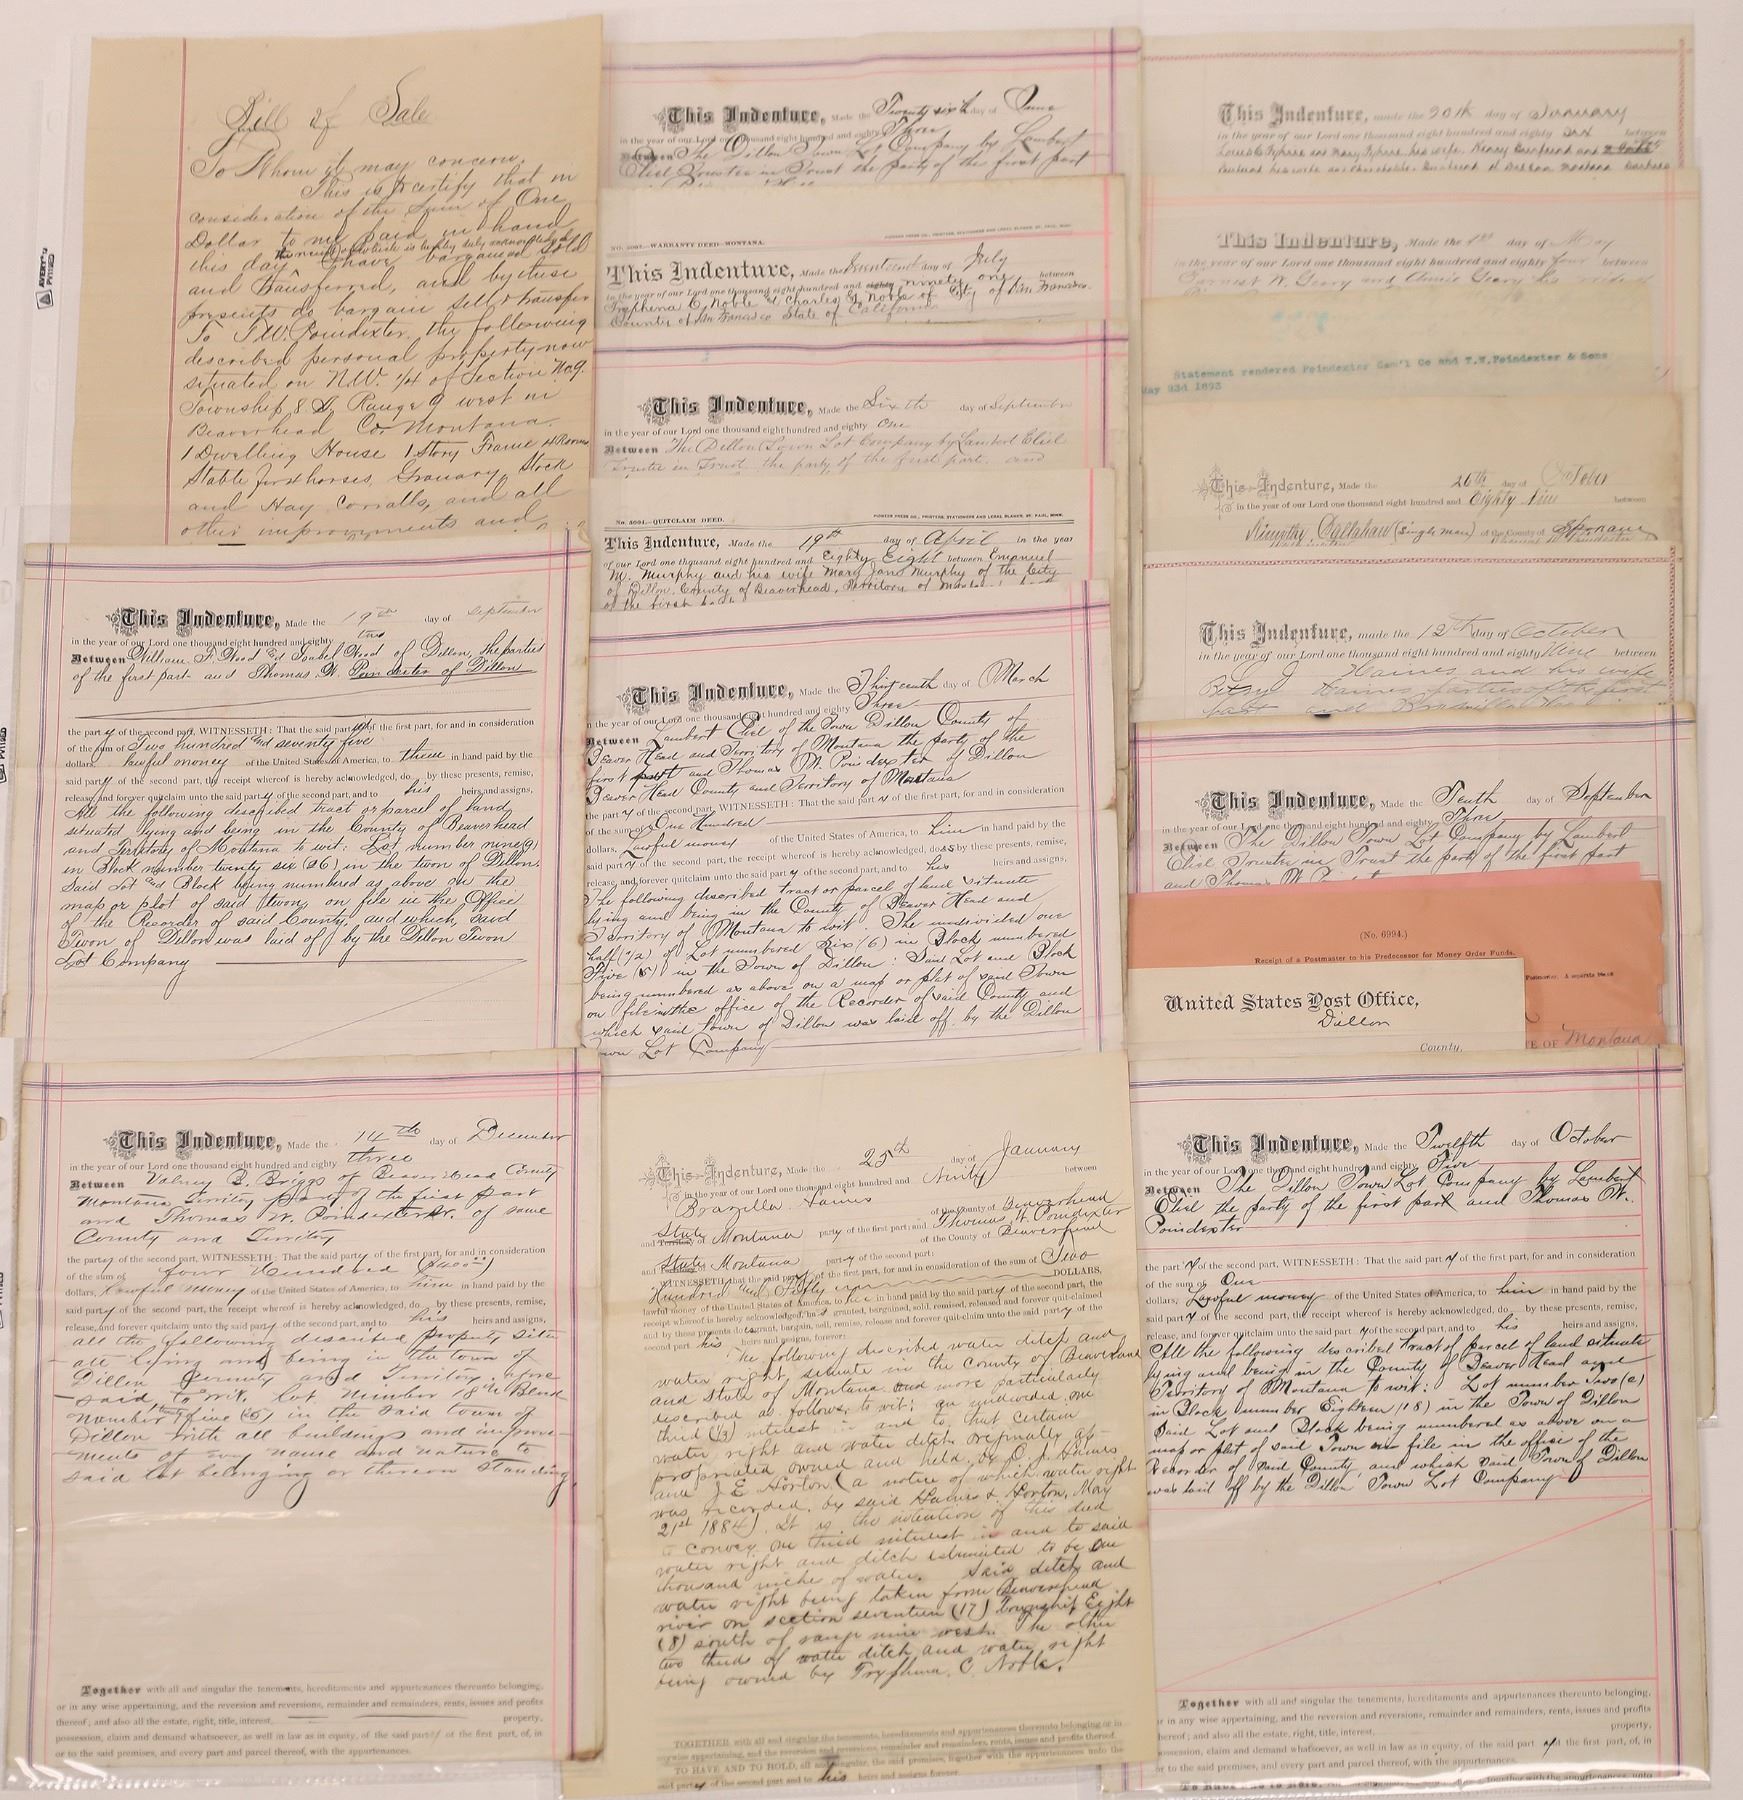 Bill of Sale
To Whom it may concern.
This is to certify that in
consideration of the Sum of One
Dollar to me paid in hand
the receipt of which is hereby duly acknowledged
this day I have bargained sold
and transferred, and by these
presents do bargain sell & transfer
To T.W. Poindexter the following
described personal property now
situated on N.W. 1/4 of Section No 9.
Township 8 S, Range 9 west in
Beaverhead Co. Montana.
1 Dwelling House 1 Story Frame 4 Rooms
Stable for horses, Granary, Stock
and Hay Corralls, and all
other improvements and
This Indenture, Made the 19th day of September
in the year of our Lord one thousand eight hundred and eighty two
Between William F. Wood and Isabel Wood of Dillon, the parties
of the first part and Thomas W. Poindexter of Dillon
the party of the second part, WITNESSETH: That the said parties of the first part, for and in consideration
of the sum of Two hundred and seventy five
dollars, lawful money of the United States of America, to them in hand paid by the
said party of the second part, the receipt whereof is hereby acknowledged, do by these presents, remise,
release, and forever quitclaim unto the said party of the second part, and to his heirs and assigns,
All the following described tract or parcel of land
situated lying and being in the County of Beaverhead
and Territory of Montana to wit: Lot number nine (9)
in Block number twenty six (26) in the twon of Dillon.
Said Lot and Block being numbered as above on the
map or plot of said twon, on file in the Office
of the Recorder of said County, and which, said
Twon of Dillon was laid off by the Dillon Twon
Lot Company
This Indenture, Made the 14th day of December
in the year of our Lord one thousand eight hundred and eighty three
Between Valney B. Briggs of Beaver Head County
Montana Territory party of the first part
and Thomas W. Poindexter Sr. of same
County and Territory
the party of the second part, WITNESSETH: That the said party of the first part, for and in consideration
of the sum of four Hundred ($400.00)
dollars, lawful money of the United States of America, to him in hand paid by the
said party of the second part, the receipt whereof is hereby acknowledged, do by these presents, remise,
release, and forever quitclaim unto the said party of the second part, and to his heirs and assigns,
all the following described property situ
ate lying and being in the town of
Dillon County and Territory afore
said, to wit. lot number 18 in Block
number twenty five (25) in the said town of
Dillon with all buildings and improve
ments of every name and nature to
said lot belonging or thereon standing
Together with all and singular the tenements, hereditaments and appurtenances thereunto belonging,
or in any wise appertaining, and the reversion and reversions, remainder and remainders, rents, issues and profits
thereof; and also all the estate, right, title, interest, property,
possession, claim and demand whatsoever, as well in law as in equity, of the said party of the first part, of, in
or to the said premises, and every part and parcel thereof, with the appurtenances.
This Indenture, Made the Twenty sixth day of June
in the year of our Lord one thousand eight hundred and eighty Three
Between The Dillon Town Lot Company by Lambert
Eliel Trustee in Trust the party of the first part
NO. 5007.—WARRANTY DEED—MONTANA.
PIONEER PRESS CO., PRINTERS, STATIONERS AND LEGAL BLANKS, ST. PAUL, MINN.
This Indenture, Made the Seventeenth day of July
in the year of our Lord one thousand eight hundred and eighty ninety one, between
Tryphena C. Noble & Charles G. Noble of City of San Francisco.
County of San Francisco State of California.
This Indenture, Made the Sixth day of September
in the year of our Lord one thousand eight hundred and eighty one
Between The Dillon Town Lot Company by Lambert Eliel
Trustee in Trust the party of the first part, and
No. 5004.—QUITCLAIM DEED.
PIONEER PRESS CO., PRINTERS, STATIONERS AND LEGAL BLANKS, ST. PAUL, MINN.
This Indenture, Made the 19th day of April in the year
of our Lord one thousand eight hundred and Eighty Eight between Emanuel
M. Murphy and his wife Mary Jane Murphy of the City
of Dillon, County of Beaverhead, Territory of Montana
of the first part
This Indenture, Made the Thirteenth day of March
in the year of our Lord one thousand eight hundred and eighty Three
Between Lambert Eliel of the Town Dillon County of
Beaver Head and Territory of Montana the party of the
first part and Thomas W. Poindexter of Dillon
Beaver Head County and Territory of Montana
the party of the second part, WITNESSETH: That the said party of the first part, for and in consideration
of the sum of One Hundred
dollars, Lawful money of the United States of America, to him in hand paid by the
said party of the second part, the receipt whereof is hereby acknowledged, does by these presents, remise,
release, and forever quitclaim unto the said party of the second part, and to his heirs and assigns,
The following described tract or parcel of land situate
lying and being in the County of Beaver Head and
Territory of Montana to wit. The undivided one
half (1/2) of Lot numbered Six (6) in Block numbered
Five (5) in the Town of Dillon: Said Lot and Block
being numbered as above on a map or plot of said Town
on file in the office of the Recorder of said County and
which said town of Dillon was laid off by the Dillon
Town Lot Company
This Indenture, Made the 25th day of January
in the year of our Lord one thousand eight hundred and Ninty between
Brazilla Haines of the County of Beaverhead
and Territory State of Montana party of the first part; and Thomas W. Poindexter
of the County of Beaverhead
and Territory State of Montana party of the second part:
WITNESSETH, that the said party of the first part, for and in consideration of the sum of Two
Hundred and Fifty DOLLARS,
lawful money of the United States of America, to in hand paid by the said party of the second part, the
receipt whereof is hereby acknowledged, has granted, bargained, sold, remised, released and forever quit-claimed
and by these presents does grant, bargain, sell, remise, release and forever quit-claim unto the said party of the
second part his heirs and assigns, forever:
The following described water ditch and
water right situate in the County of Beaverhead
and State of Montana and more particularly
described as follows, to wit: an undivided one
third (1/3) interest in and to that certain
water right and water ditch originally ap-
propriated owned and held by O. J. Haines
and J. E. Horton (a notice of which water right
was recorded by said Haines & Horton, May
21st 1884). It is the intention of this deed
to convey one third interest in and to said
water right and ditch estimated to be One
thousand inches of water. Said ditch and
water right being taken from Beaverhead
river on section seventeen (17) Township Eight
(8) south of range nine west. The other
two thirds of water ditch and water right
being owned by Tryphena C. Noble.
TOGETHER with all and singular the tenements, hereditaments and appurtenances thereunto belonging or in
anywise appertaining, and the reversion and reversions, remainder and remainders, rents, issues and profits thereof
TO HAVE AND TO HOLD, all and singular, the said premises, together with the appurtenances unto the
said party of the second part and to his heirs and assigns forever.
This Indenture, made the 20th day of January
in the year of our Lord one thousand eight hundred and eighty six between
This Indenture, Made the 1st day of May
in the year of our Lord one thousand eight hundred and eighty four between
Earnest W. Geary and Annie Geary his
Statement rendered Poindexter Gem'l Co and T.W.Poindexter & Sons
May 23d 1893
This Indenture, Made the 26th day of October
in the year of our Lord one thousand eight hundred and Eighty Nine between
Timothy Callahan (single man) of the County of Spokane
This Indenture, made the 12th day of October
in the year of our Lord one thousand eight hundred and eighty Nine between
J Haines and his wife
Betsy Haines parties of the first
part and
This Indenture, Made the Tenth day of September
in the year of our Lord one thousand eight hundred and eighty Three
Between The Dillon Town Lot Company by Lambert
Eliel Trustee in Trust the party of the first part
and Thomas W.
(No. 6994.)
Receipt of a Postmaster to his Predecessor for Money Order Funds.
United States Post Office,
Dillon
County,
Montana
This Indenture, Made the Twelfth day of October
in the year of our Lord one thousand eight hundred and eighty Five
Between The Dillon Town Lot Company by Lambert
Eliel the party of the first part and Thomas W.
Poindexter
the party of the second part, WITNESSETH: That the said party of the first part, for and in consideration
of the sum of One
dollars, Lawful money of the United States of America, to him in hand paid by the
said party of the second part, the receipt whereof is hereby acknowledged, do by these presents, remise,
release, and forever quitclaim unto the said party of the second part, and to his heirs and assigns,
All the following described tract of parcel of land situate
lying and being in the County of Beaver Head and
Territory of Montana to wit: Lot number Two (2)
in Block number Eighteen (18) in the Town of Dillon
Said Lot and Block being numbered as above on a
map or plot of said Town on file in the office of the
Recorder of said County, and which said Town of Dillon
was laid off by the Dillon Town Lot Company
Together with all and singular the tenements, hereditaments and appurtenances thereunto belonging,
or in any wise appertaining, and the reversion and reversions, remainder and remainders, rents, issues and profits
thereof; and also all the estate, right, title, interest, property,
possession, claim and demand whatsoever, as well in law as in equity, of the said party of the first part, of, in
or to the said premises, and every part and parcel thereof, with the appurtenances.